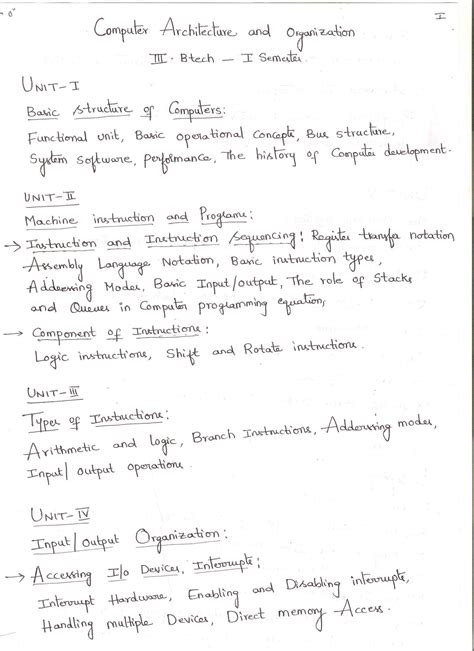 I
Computer Architecture and Organization
III. Btech — I Semester
UNIT-I
Basic structure of Computers:
Functional unit, Basic operational Concepts, Bus structure,
System software, Performance, The history of Computer development.
UNIT-II
Machine instruction and Programs:
→ Instruction and Instruction sequencing: Register transfer notation
Assembly Language Notation, Basic instruction types,
Addressing Modes, Basic Input/output, The role of Stacks
and Queues in Computer programming equation,
→ Component of Instructions:
Logic instructions, Shift and Rotate instructions.
UNIT-III
Types of Instructions:
Arithmetic and logic, Branch Instructions, Addressing modes,
Input/output operations.
UNIT-IV
Input/output Organization:
→ Accessing I/o Devices, Interrupts:
Interrupt Hardware, Enabling and Disabling interrupts,
Handling multiple Devices, Direct memory Access.